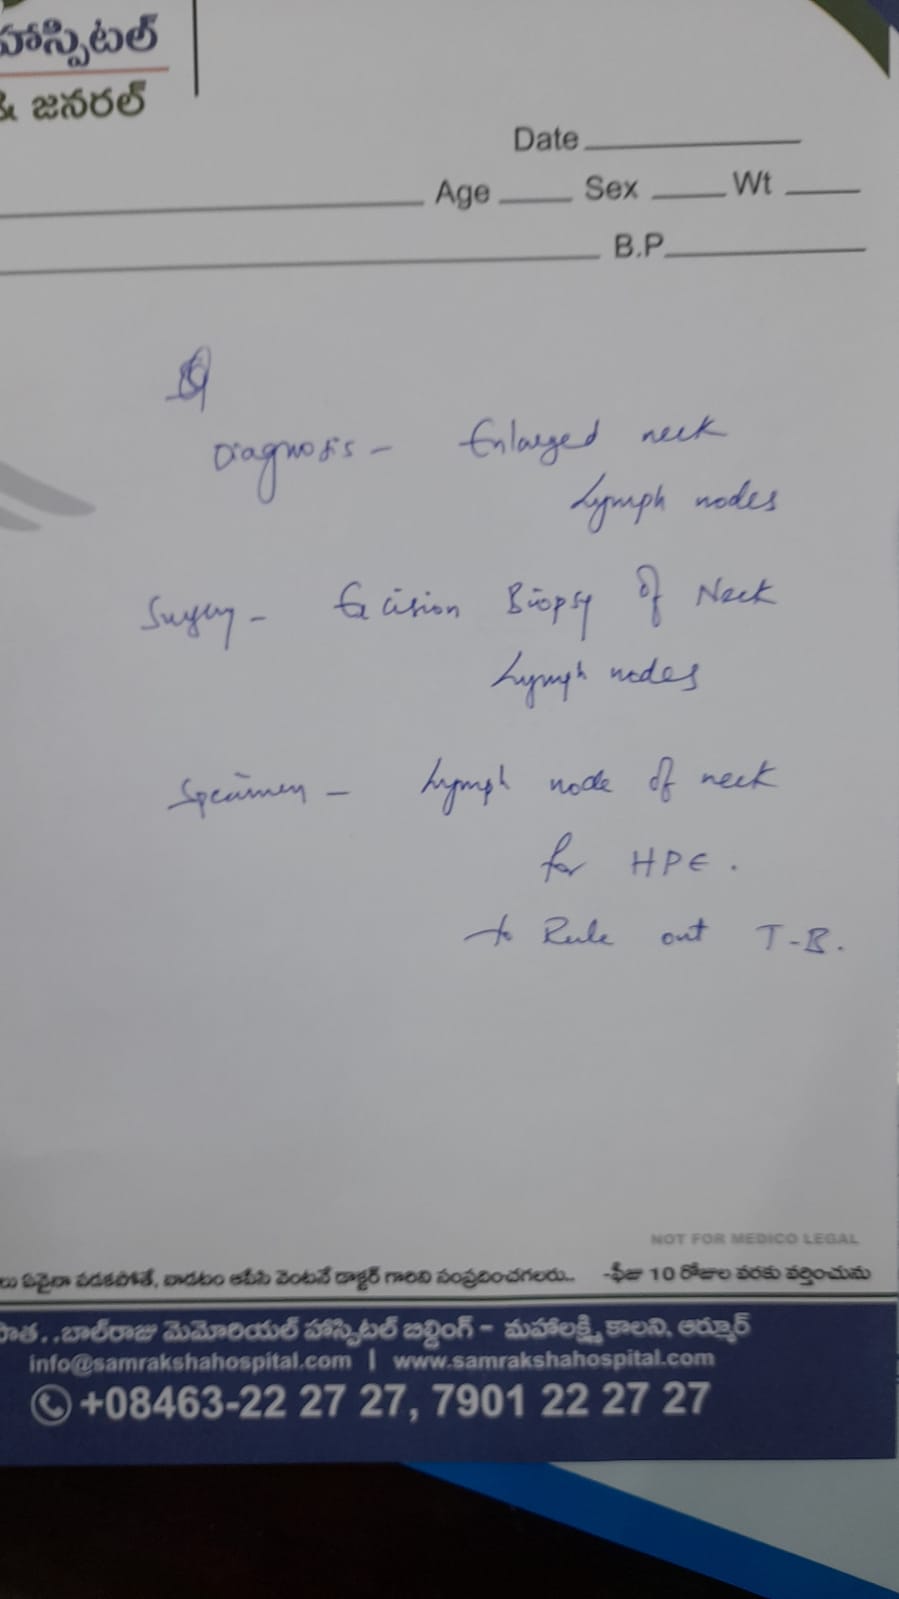 హాస్పిటల్
& జనరల్
Date
Age Sex Wt
B.P.
Diagnosis - Enlarged neck
Lymph nodes
Surgery - Excision Biopsy of Neck
Lymph nodes
Specimen - Lymph node of neck
for HPE.
to Rule out T-B.
NOT FOR MEDICO LEGAL
లు ఏవైనా పడకపోతే, వాడటం ఆపేసి వెంటనే డాక్టర్ గారిని సంప్రదించగలరు.. -ఫీజు 10 రోజుల వరకు వర్తించును
పాత..బాల్‌రాజు మెమోరియల్ హాస్పిటల్ బిల్డింగ్ - మహాలక్ష్మి కాలని, ఆర్మూర్
info@samrakshahospital.com | www.samrakshahospital.com
+08463-22 27 27, 7901 22 27 27